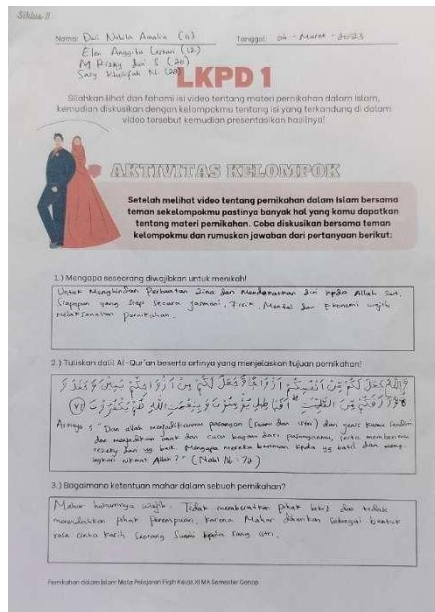 Siklus II
Nama: Dwi Nabila Amalia (11)
Tanggal: 06 - Maret - 2023
Elen Anggita Lestari (12)
M Rizky S (20)
Sary Kholifah N. (28)
LKPD 1
Silahkan lihat dan fahami isi video tentang materi pernikahan dalam Islam,
kemudian diskusikan dengan kelompokmu tentang isi yang terkandung di dalam
video tersebut kemudian presentasikan hasilnya!
AKTIVITAS KELOMPOK
Setelah melihat video tentang pernikahan dalam Islam bersama
teman sekelompokmu pastinya banyak hal yang kamu dapatkan
tentang materi pernikahan. Coba diskusikan bersama teman
kelompokmu dan rumuskan jawaban dari pertanyaan berikut:
1.) Mengapa seseorang diwajibkan untuk menikah!
Untuk Menghindari Perbuatan Zina dan Mendekatkan diri kpda Allah Swt.
Siapapun yang siap secara jasmani, Fisik, Mental dan Ekonomi wajib
melaksanakan pernikahan.
2.) Tuliskan dalil Al-Qur'an beserta artinya yang menjelaskan tujuan pernikahan!
وَاللّٰهُ جَعَلَ لَكُمْ مِّنْ اَنْفُسِكُمْ اَزْوَاجًا وَّجَعَلَ لَكُمْ مِّنْ اَزْوَاجِكُمْ بَنِيْنَ وَحَفَدَةً وَّ
رَزَقَكُمْ مِّنَ الطَّيِّبٰتِ اَفَبِالْبَاطِلِ يُؤْمِنُوْنَ وَبِنِعْمَتِ اللّٰهِ هُمْ يَكْفُرُوْنَ (٧٢)
Artinya : "Dan allah menjadikanmu pasangan (suami dan istri) dari jenis kamu sendiri
dan menjadikan anak dan cucu bagimu dari pasanganmu, serta memberimu
rezeky dari yg baik. Mengapa mereka beriman kpda yg batil dan meng-
ingkari nikmat Allah?" (Nahl 16 : 72)
3.) Bagaimana ketentuan mahar dalam sebuah pernikahan?
Mahar hukumnya wajib. Tidak memberatkan pihak laki2 dan tidak
merendahkan pihak perempuan, karena Mahar diberikan sebagai bentuk
rasa cinta kasih seorang Suami kpada sang istri.
Pernikahan dalam Islam: Mata Pelajaran Fiqih Kelas XI MA Semester Genap